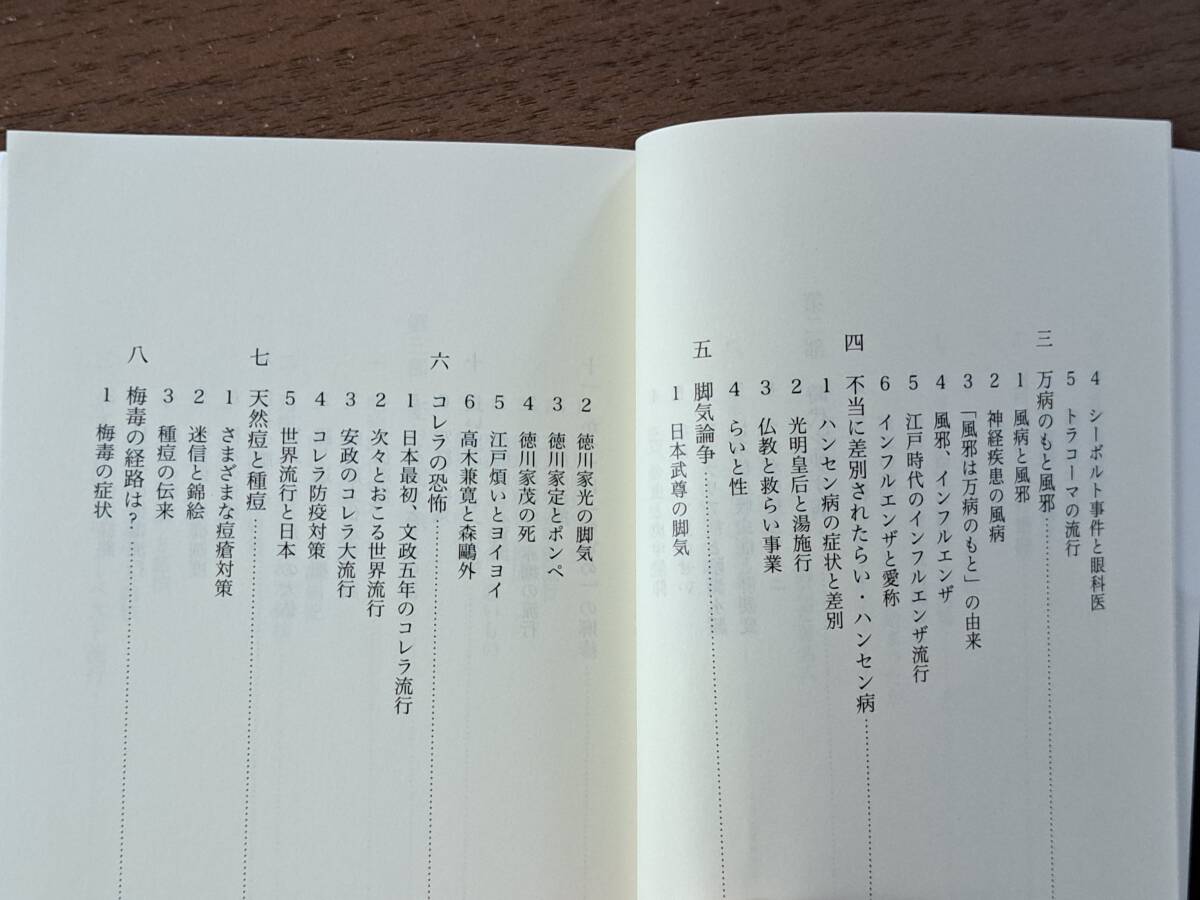 4 シーボルト事件と眼科医
5 トラコーマの流行
三 万病のもと風邪
1 風病と風邪
2 神経疾患の風病
3 「風邪は万病のもと」の由来
4 風邪、インフルエンザ
5 江戸時代のインフルエンザ流行
6 インフルエンザと愛称
四 不当に差別されたらい・ハンセン病
1 ハンセン病の症状と差別
2 光明皇后と湯施行
3 仏教と救らい事業
4 らいと性
五 脚気論争
1 日本武尊の脚気
2 徳川家光の脚気
3 徳川家定とポンペ
4 徳川家茂の死
5 江戸煩いとヨイヨイ
6 高木兼寛と森鷗外
六 コレラの恐怖
1 日本最初、文政五年のコレラ流行
2 次々とおこる世界流行
3 安政のコレラ大流行
4 コレラ防疫対策
5 世界流行と日本
七 天然痘と種痘
1 さまざまな痘瘡対策
2 迷信と錦絵
3 種痘の伝来
八 梅毒の経路は?
1 梅毒の症状